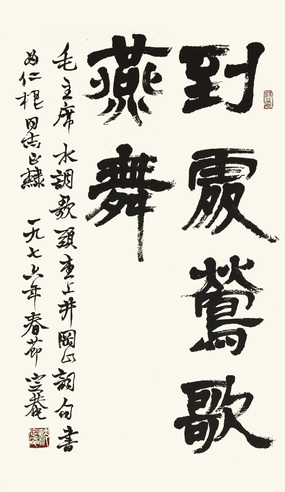 到處鶯歌
燕舞
毛主席水調歌頭重上井岡山詞句書
為仁棍同志正隸 一九七六年春節 定菴